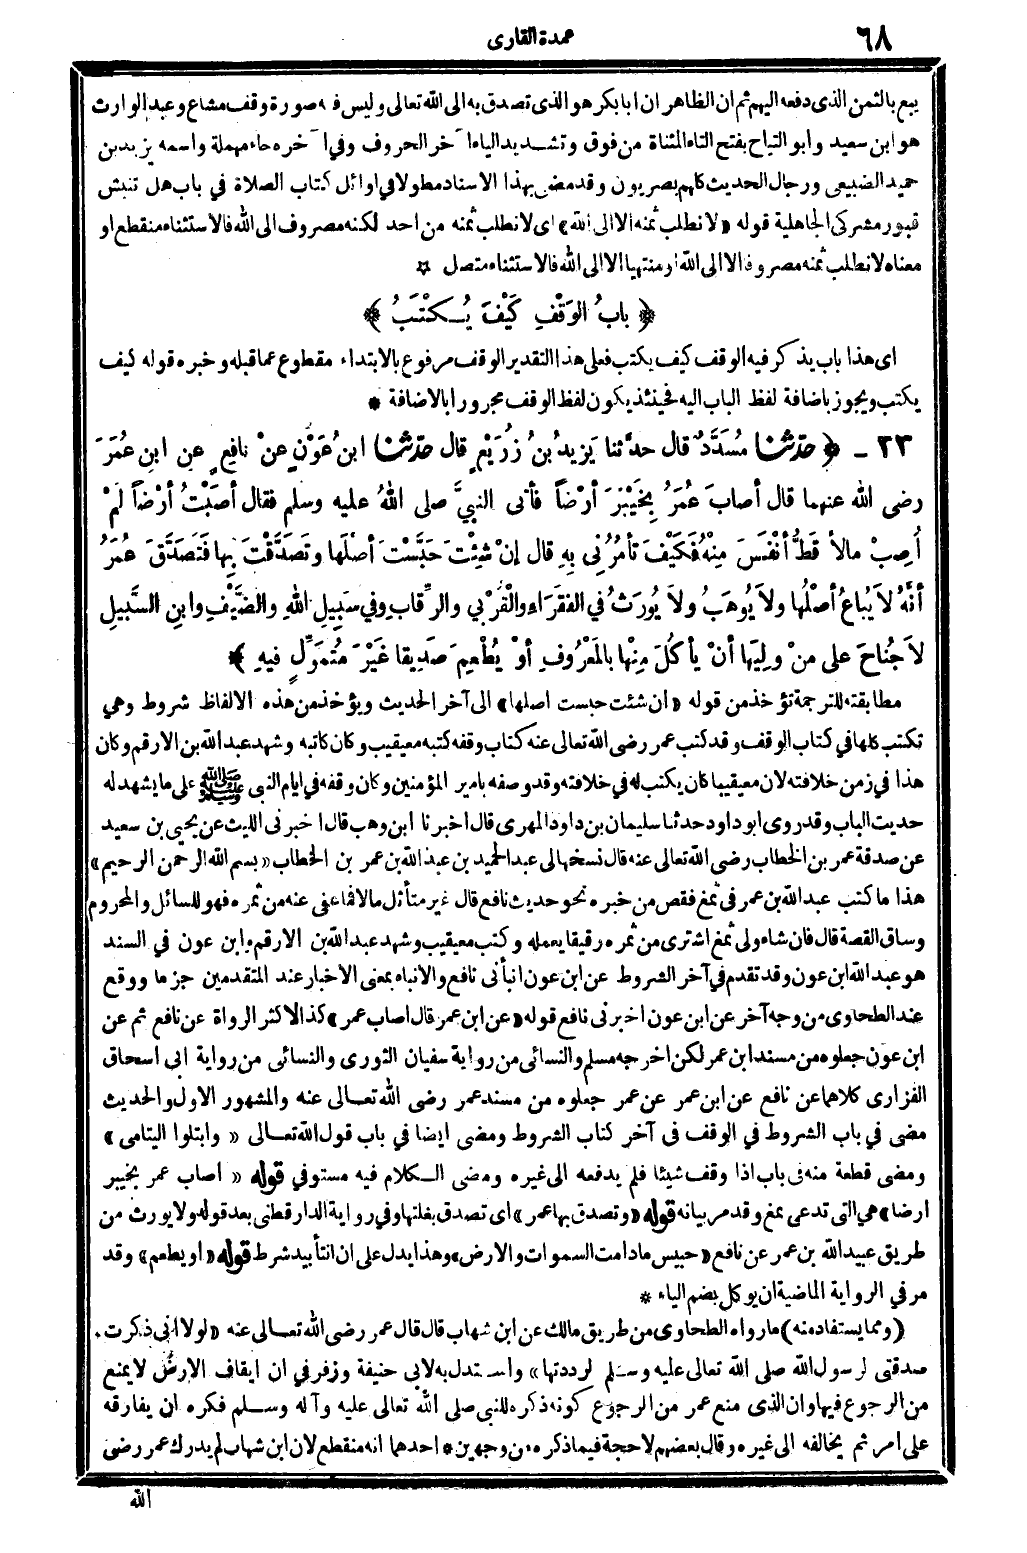 ٦٨
عمدة القارى
يبع بالثمن الذى دفعه اليهم ثم ان الظاهر ان ابا بكر هو الذى تصدق به الى الله تعالى وليس فيه صورة وقف مشاع وعبد الوارث
هو ابن سعيد وأبو التياح بفتح التاء المثناة من فوق وتشديد الياء آخر الحروف وفي آخره حاء مهملة واسمه يزيد بن
حميد الضبيعى ورجال الحديث كلهم بصريون وقد مضى بهذا الاسناد مطولا في اوائل كتاب الصلاة في باب هل تنبش
قبور مشركى الجاهلية قوله «لا نطلب ثمنه الا الى الله» اى لا نطلب ثمنه من احد لكنه مصروف الى الله فالاستثناء منقطع او
معناه لا نطلب ثمنه مصروفا الا الى الله او منتهيا الا الى الله فالاستثناء متصل ☆
﴿ بابُ الوَقْفِ كَيْفَ يُكْتَبُ ﴾
اى هذا باب يذكر فيه الوقف كيف يكتب فعلى هذا التقدير الوقف مرفوع بالابتداء مقطوع عما قبله وخبره قوله كيف
يكتب ويجوز باضافة لفظ الباب اليه فحينئذ يكون لفظ الوقف مجرورا بالاضافة *
٢٣ - ﴿ حَدَّثَنَا مُسَدَّدٌ قال حدَّثنا يَزِيدُ بنُ زُرَيْعٍ قال حَدَّثَنَا ابنُ عَوْنٍ عنْ نافِعٍ عنِ ابنِ عُمَرَ
رضى الله عنهما قال أصابَ عُمَرُ بِخَيْبَرَ أرْضاً فأتى النبيَّ صلى اللهُ عليه وسلم فقال أصَبْتُ أرْضاً لَمْ
أُصِبْ مالاً قَطُّ أنْفَسَ مِنْهُ فَكَيْفَ تأمُرُنى بِهِ قال إنْ شِئْتَ حَبَّسْتَ أصْلَها وتَصَدَّقْتَ بِها فَتَصَدَّقَ عُمَرُ
أنَّهُ لاَ يُباعُ أصْلُها ولاَ يُوهَبُ ولاَ يُورَثُ في الفقَرَاءِ والقُرْبي والرِّقابِ وفي سَبيلِ اللهِ والضَّيْفِ وابنِ السَّبيلِ
لاَ جُناحَ على منْ ولِيَها أنْ يأكُلَ مِنْها بالمَعْرُوفِ أوْ يُطْعِمَ صَدِيقا غَيْرَ مُتَمَوِّلٍ فيهِ ﴾
مطابقته للترجمة تؤخذ من قوله «ان شئت حبست اصلها» الى آخر الحديث ويؤخذ من هذه الالفاظ شروط وهي
تكتب كلها في كتاب الوقف وقد كتب عمر رضى الله تعالى عنه كتاب وقفه كتبه معيقيب وكان كاتبه وشهد عبد الله بن الارقم وكان
هذا في زمن خلافته لان معيقيبا كان يكتب له في خلافته وقد وصفه بامير المؤمنين وكان وقفه في ايام النبى ﷺ على ما يشهد له
حديث الباب وقد روى ابو داود حدثنا سليمان بن داود المهرى قال اخبرنا ابن وهب قال اخبرنى الليث عن يحيى بن سعيد
عن صدقة عمر بن الخطاب رضى الله تعالى عنه قال نسخها لى عبد الحميد بن عبد الله بن عمر بن الخطاب «بسم الله الرحمن الرحيم»
هذا ما كتب عبد الله بن عمر فى ثمغ فقص من خبره نحو حديث نافع قال غير متأثل مالا فما عفى عنه من ثمره فهو للسائل والمحروم
وساق القصة قال فان شاء ولى ثمغ اشترى من ثمره رقيقا يعمله وكتب معيقيب وشهد عبد الله بن الارقم وابن عون في السند
هو عبد الله ابن عون وقد تقدم في آخر الشروط عن ابن عون انبأنى نافع والانباء بمعنى الاخبار عند المتقدمين جزما ووقع
عند الطحاوى من وجه آخر عن ابن عون اخبرنى نافع قوله «عن ابن عمر قال اصاب عمر» كذا لاكثر الرواة عن نافع ثم عن
ابن عون جعلوه من مسند ابن عمر لكن اخرجه مسلم والنسائى من رواية سفيان الثورى والنسائى من رواية ابى اسحاق
الفزارى كلاهما عن نافع عن ابن عمر عن عمر جعلوه من مسند عمر رضى الله تعالى عنه والمشهور الاول والحديث
مضى في باب الشروط في الوقف فى آخر كتاب الشروط ومضى ايضا في باب قول الله تعالى « وابتلوا اليتامى »
ومضى قطعة منه فى باب اذا وقف شيئا فلم يدفعه الى غيره ومضى الكلام فيه مستوفي قوله « أصاب عمر بخيبر
ارضا» هي التى تدعى بمغ وقد مر بيانه قوله «وتصدق بها عمر» اى تصدق بغلتها وفي رواية الدارقطنى بعد قوله ولا يورث من
طريق عبيد الله بن عمر عن نافع «حبيس مادامت السموات والارض» وهذا يدل على ان التأبيد شرط قوله «او يطعم» وقد
مر في الرواية الماضية ان يوكل بضم الياء *
(ومما يستفاد منه) ما رواه الطحاوى من طريق مالك عن ابن شهاب قال قال عمر رضى الله تعالى عنه «لولا انى ذكرت
صدقتى لرسول الله صلى الله تعالى عليه وسلم لرددتها» واستدل به لابى حنيفة وزفر في ان ايقاف الارض لا يمنع
من الرجوع فيها وان الذى منع عمر من الرجوع كونه ذكره للنبى صلى الله تعالى عليه وآله وسلم فكره ان يفارقه
على امر ثم يخالفه الى غيره وقال بعضهم لا حجة فيما ذكره من وجهين * احدها انه منقطع لان ابن شهاب لم يدرك عمر رضى
الله